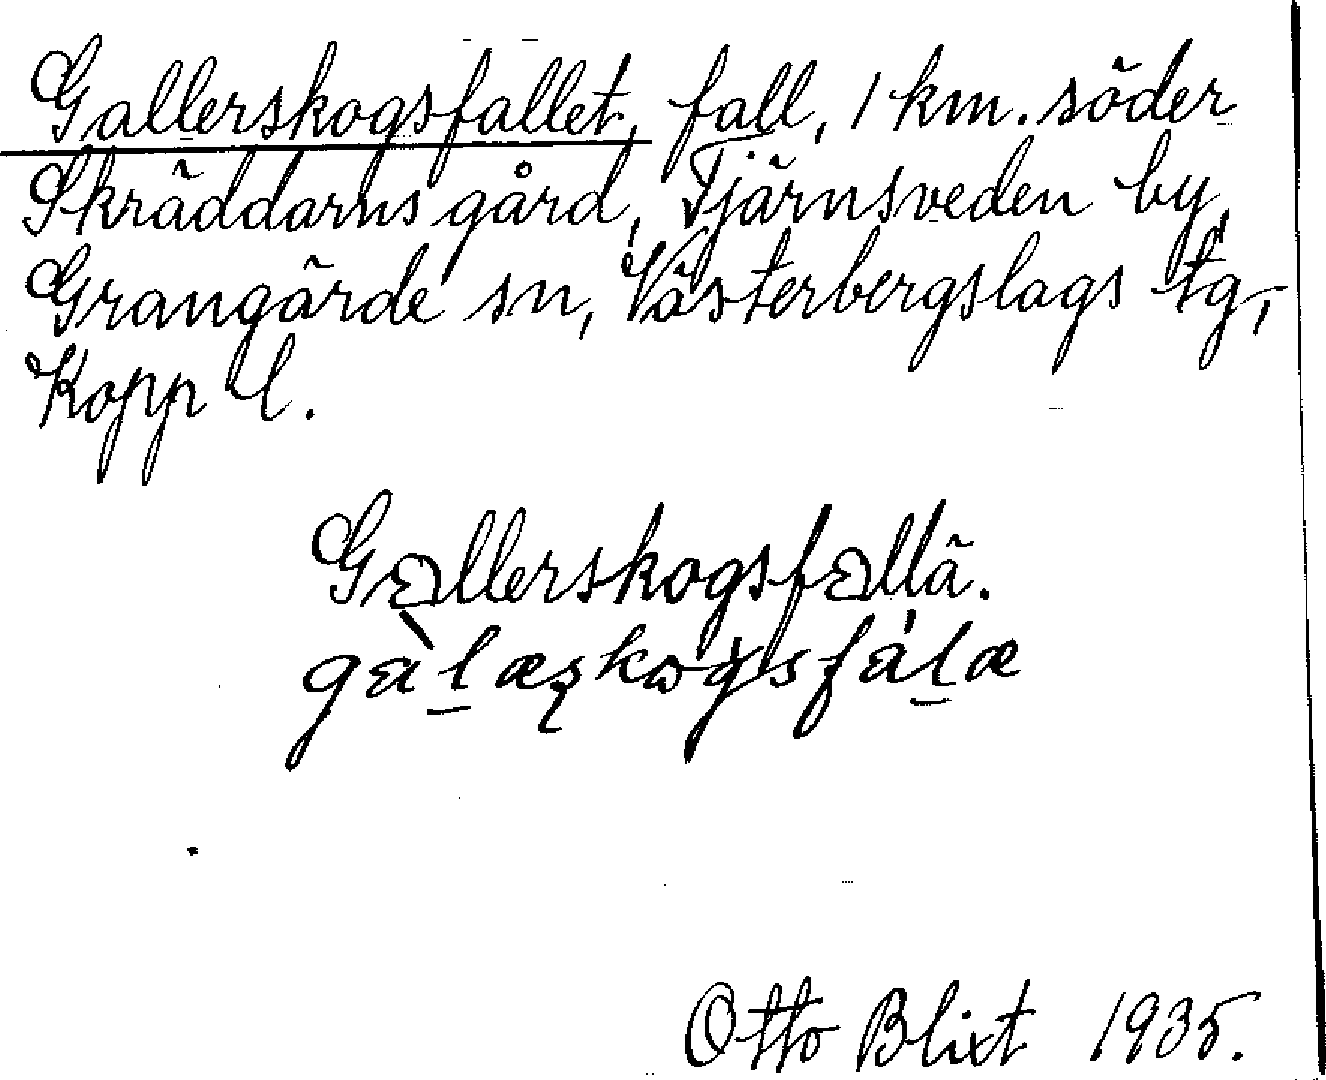 Gallerskogsfallet, fall, 1 km. söder
Skräddarns gård, Tjärnsveden by,
Grangärde sn, Västerbergslags tg,
Kopp l.
Gallerskogsfallä.
gàlæşkogsfálæ
Otto Blixt 1935.